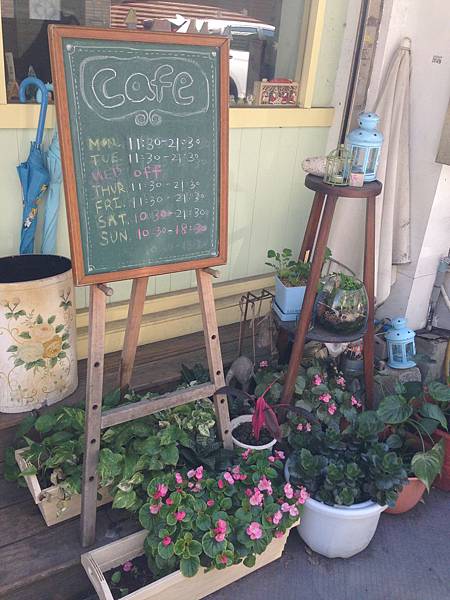 Cafe
MON. 11:30-21:30
TUE. 11:30-21:30
WED. off
THUR. 11:30-21:30
FRI. 11:30-21:30
SAT. 10:30-21:30
SUN. 10:30-18:30